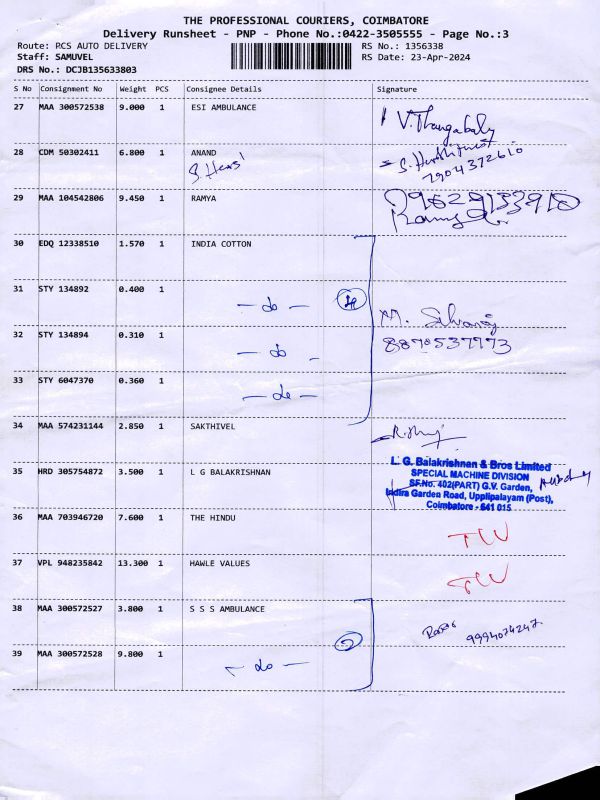 THE PROFESSIONAL COURIERS, COIMBATORE
Delivery Runsheet - PNP - Phone No.:0422-3505555 - Page No.:3
Route: PCS AUTO DELIVERY RS No.: 1356338
Staff: SAMUVEL RS Date: 23-Apr-2024
DRS No.: DCJB135633803
S No Consignment No Weight PCS Consignee Details Signature
27 MAA 300572538 9.000 1 ESI AMBULANCE
V. Thangabaly
28 CDM 50302411 6.800 1 ANAND
7904372610
29 MAA 104542806 9.450 1 RAMYA
30 EDQ 12338510 1.570 1 INDIA COTTON
31 STY 134892 0.400 1
- do - 4
M. Selvaraj
32 STY 134894 0.310 1
8870537773
- do -
33 STY 6047370 0.360 1
- do -
34 MAA 574231144 2.850 1 SAKTHIVEL
35 HRD 305754872 3.500 1 L G BALAKRISHNAN
L. G. Balakrishnan & Bros Limited
SPECIAL MACHINE DIVISION
SF.No. 402(PART) G.V. Garden,
Indira Garden Road, Upplipalayam (Post),
Coimbatore - 641 015
36 MAA 703946720 7.600 1 THE HINDU
TW
37 VPL 948235842 13.300 1 HAWLE VALUES
TW
38 MAA 300572527 3.800 1 S S S AMBULANCE
2
9994074247
39 MAA 300572528 9.800 1
- do -